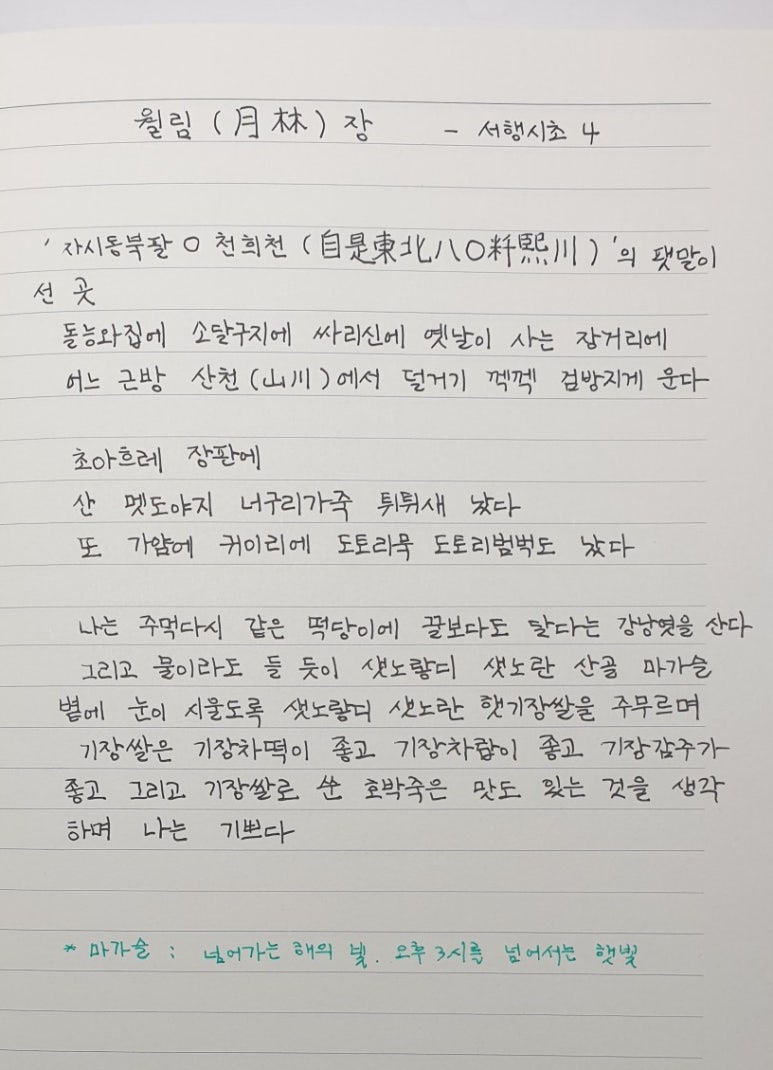 월림 (月林) 장 - 서행시초 4
'자시동북팔 O 천희천 (自是東北八O粁熙川)'의 팻말이
선 곳
돌능와집에 소달구지에 싸리신에 옛날이 사는 장거리에
어느 근방 산천(山川)에서 덜거기 껙껙 검방지게 운다
초아흐레 장판에
산 멧도야지 너구리가죽 튀튀새 났다
또 가얌에 귀이리에 도토리묵 도토리범벅도 났다
나는 주먹다시 같은 떡당이에 꿀보다도 달다는 강낭엿을 산다
그리고 물이라도 들 듯이 샛노랗디 샛노란 산골 마가슬
볕에 눈이 시울도록 샛노랗디 샛노란 햇기장쌀을 주무르며
기장쌀은 기장차떡이 좋고 기장차랍이 좋고 기장감주가
좋고 그리고 기장쌀로 쑨 호박죽은 맛도 있는 것을 생각
하며 나는 기쁘다
* 마가슬 : 넘어가는 해의 빛. 오후 3시를 넘어서는 햇빛